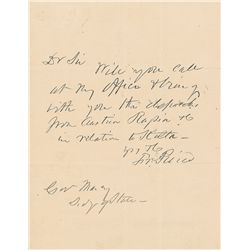 Dr Sir
Will you call
at my Office & bring
with you the dispatches
from Austria &c
in relation to
yrs &c
Fr. Pierce
Gov Marcy
Secy of State -